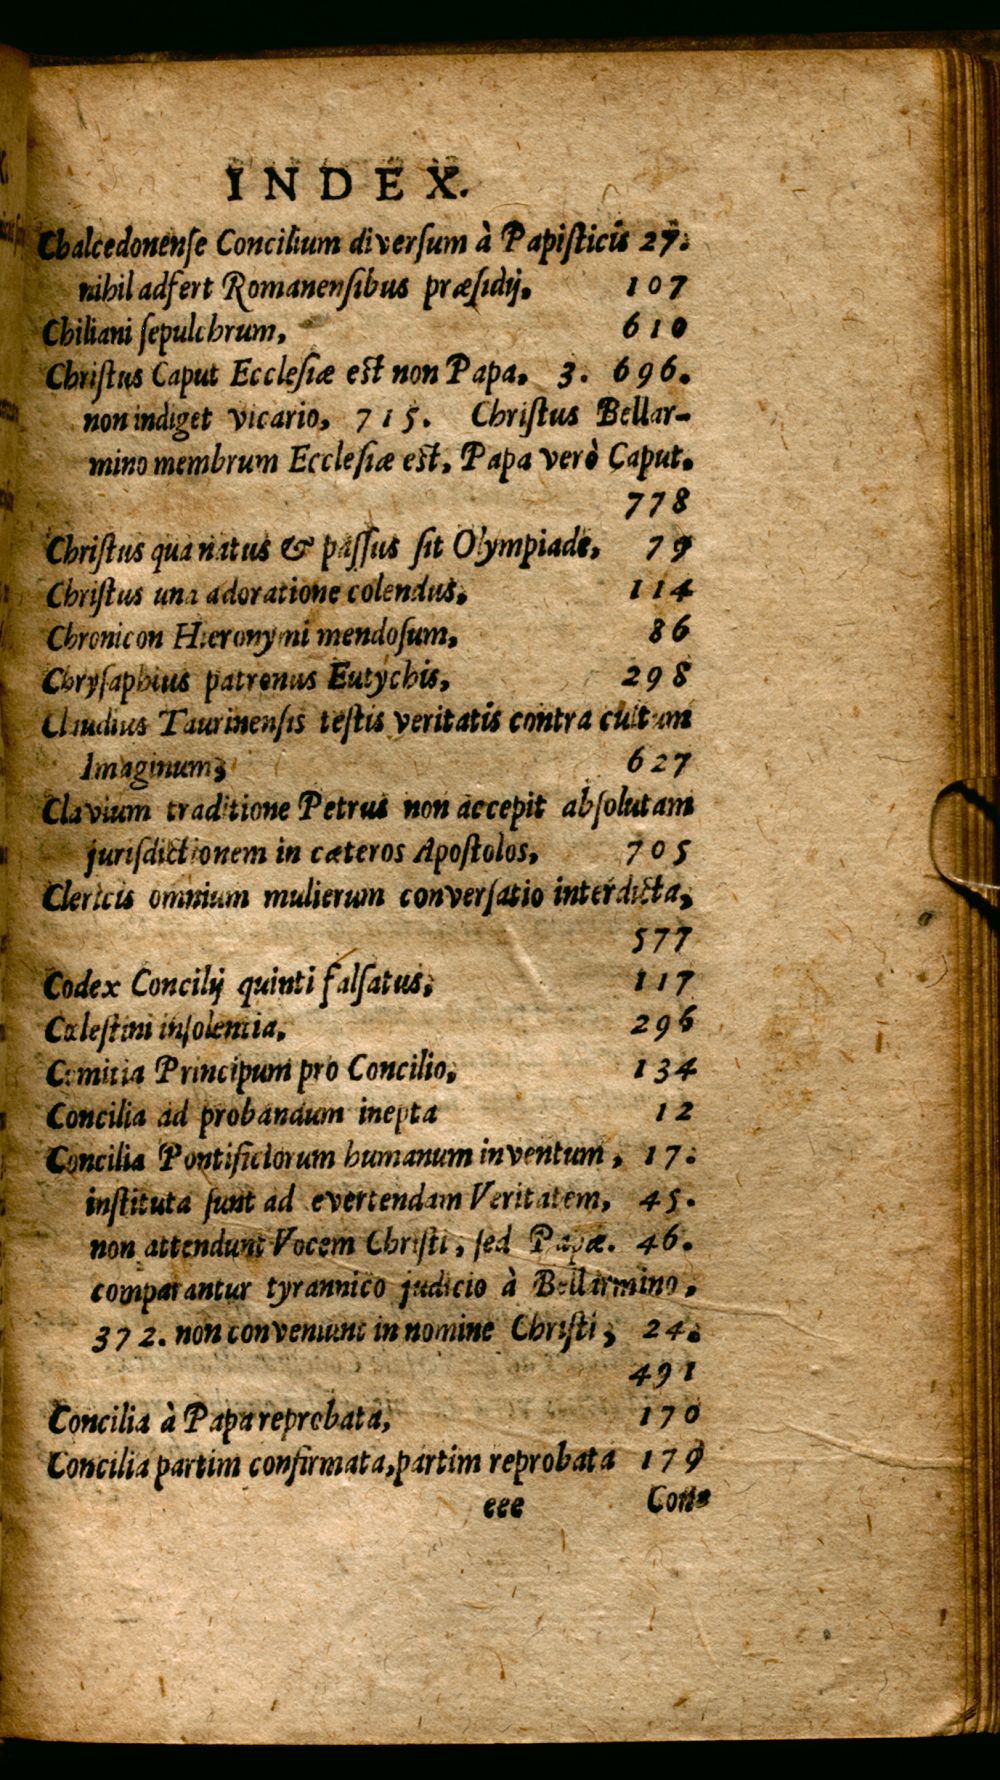 INDEX.
Chalcedonense Concilium diversum à Papisticis 27.
nihil adfert Romanensibus præsidij. 107
Chiliani sepulchrum, 610
Christus Caput Ecclesiæ est non Papa. 3. 696.
non indiget vicario, 715. Christus Bellar-
mino membrum Ecclesiæ est, Papa verò Caput.
778
Christus qua natus & passus sit Olympiade, 79
Christus una adoratione colendus, 114
Chronicon Hieronymi mendosum, 86
Chrysaphius patronus Eutychis, 298
Claudius Taurinensis testis veritatis contra cultum
Imaginum, 627
Clavium traditione Petrus non accepit absolutam
jurisdictionem in cæteros Apostolos, 705
Clericis omnium mulierum conversatio interdicta,
577
Codex Concilij quinti falsatus, 117
Cælestini insolentia, 296
Comitia Principum pro Concilio, 134
Concilia ad probandum inepta 12
Concilia Pontificiorum humanum inventum, 17.
instituta sunt ad evertendam Veritatem, 45.
non attendunt Vocem Christi, sed Papæ. 46.
comparantur tyrannico judicio à Bellarmino,
372. non conveniunt in nomine Christi, 24.
491
Concilia à Papa reprobata, 170
Concilia partim confirmata, partim reprobata 179
eee Con-